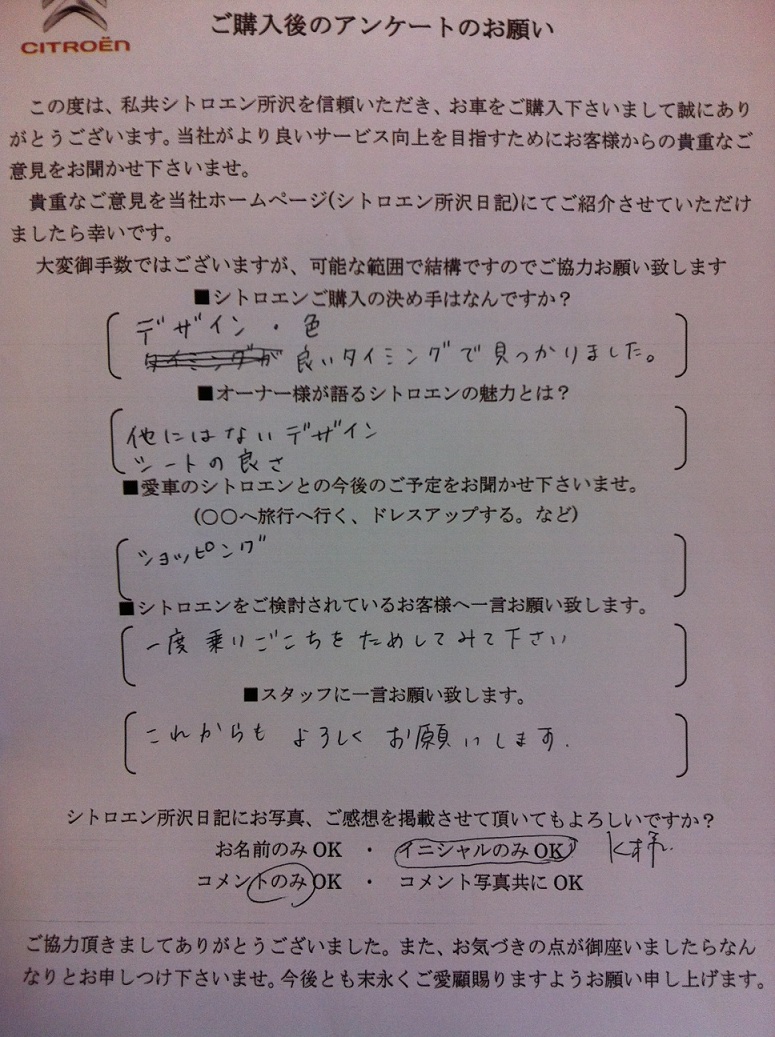 CITROËN
ご購入後のアンケートのお願い
この度は、私共シトロエン所沢を信頼いただき、お車をご購入下さいまして誠にあり
がとうございます。当社がより良いサービス向上を目指すためにお客様からの貴重なご
意見をお聞かせ下さいませ。
貴重なご意見を当社ホームページ(シトロエン所沢日記)にてご紹介させていただけ
ましたら幸いです。
大変御手数ではございますが、可能な範囲で結構ですのでご協力お願い致します
■シトロエンご購入の決め手はなんですか？
デザイン・色
タイミングが 良いタイミングで見つかりました。
■オーナー様が語るシトロエンの魅力とは？
他にはないデザイン
シートの良さ
■愛車のシトロエンとの今後のご予定をお聞かせ下さいませ。
(○○へ旅行へ行く、ドレスアップする。など)
ショッピング
■シトロエンをご検討されているお客様へ一言お願い致します。
一度乗りごこちをためしてみて下さい
■スタッフに一言お願い致します。
これからも よろしく お願いします.
シトロエン所沢日記にお写真、ご感想を掲載させて頂いてもよろしいですか？
お名前のみ OK ・ イニシャルのみ OK K様.
コメントのみ OK ・ コメント写真共に OK
ご協力頂きましてありがとうございました。また、お気づきの点が御座いましたらなん
なりとお申しつけ下さいませ。今後とも末永くご愛顧賜りますようお願い申し上げます。